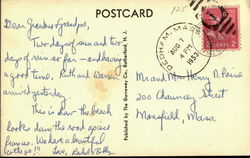 125
POSTCARD
Dear Grandma & Grandpa,
Two days of sun and two
days of rain so far - and having
a good time, Ruth and Dave
arrived yesterday.
This is how the beach
looks down the road apiece
from us. We have a beautiful
cottage!! Love,
DEDHAM, MASS.
AUG 7
PM
1951
2 CENTS 2
Mr and Mrs Henry N. Paine
200 Chauncey Street
Mansfield, Mass.
Published by The
Rutherford, N. J.